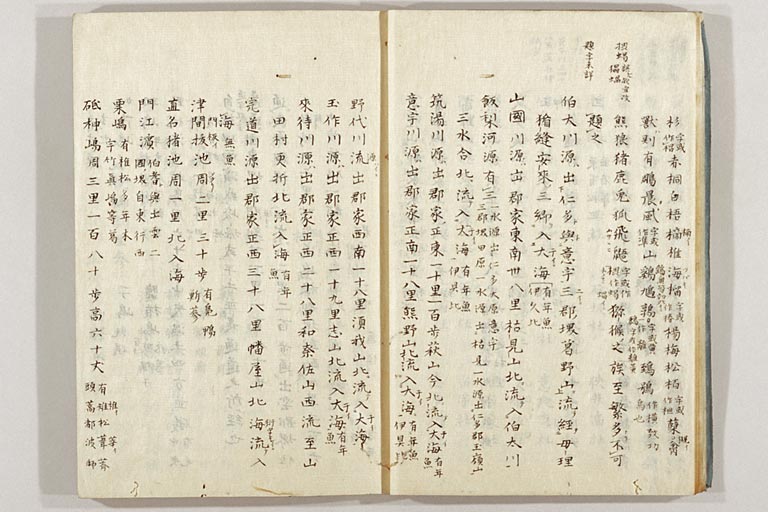 杉 字或作椙 赤桐白梧楠椎海榴 楊梅松栢 字或 蘗
獣則有鵰晨風 山鷄鳩鶉
熊狼猪鹿兎狐飛鼯 獼猴之族至繁多不可
題之
題字未詳
伯太川源出仁多與意宇二郡堺葛野山流経母理
楯縫安來三郷入大海 有年魚伊久比
山國川源出郡家東南卅八里枯見山北流入伯太川
飯梨河源有三 一水源出仁多大原意宇三郡堺田原 一水源出枯見 一水源出仁多郡玉嶺山
三水合北流入大海 有年魚伊具比
筑湯川源出郡家正東一十里一百歩荻山北流入大海 有年魚
意宇川源出郡家正南一十八里熊野山北流入大海 有年魚伊具比
野代川流出郡家西南一十八里須我山北流入大海
玉作川源出郡家正西一十九里志山北流入大海 有年魚
來待川源出郡家正西二十八里和奈佐山西流至山
田村更折北流入海 有年魚
宍道川源出郡家正西三十八里幡屋山北流入
海 無魚
津間抜池周二里三十歩 有鳧鴨
真名猪池周一里北入海
門江濱 伯耆與出雲二國堺自東行西
栗嶋 有椎松多年木宇竹真嶋等葛
砥神嶋周三里一百八十歩高六十丈 有椎松